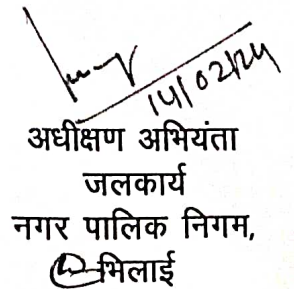 14/02/24
अधीक्षण अभियंता
जलकार्य
नगर पालिक निगम,
भिलाई